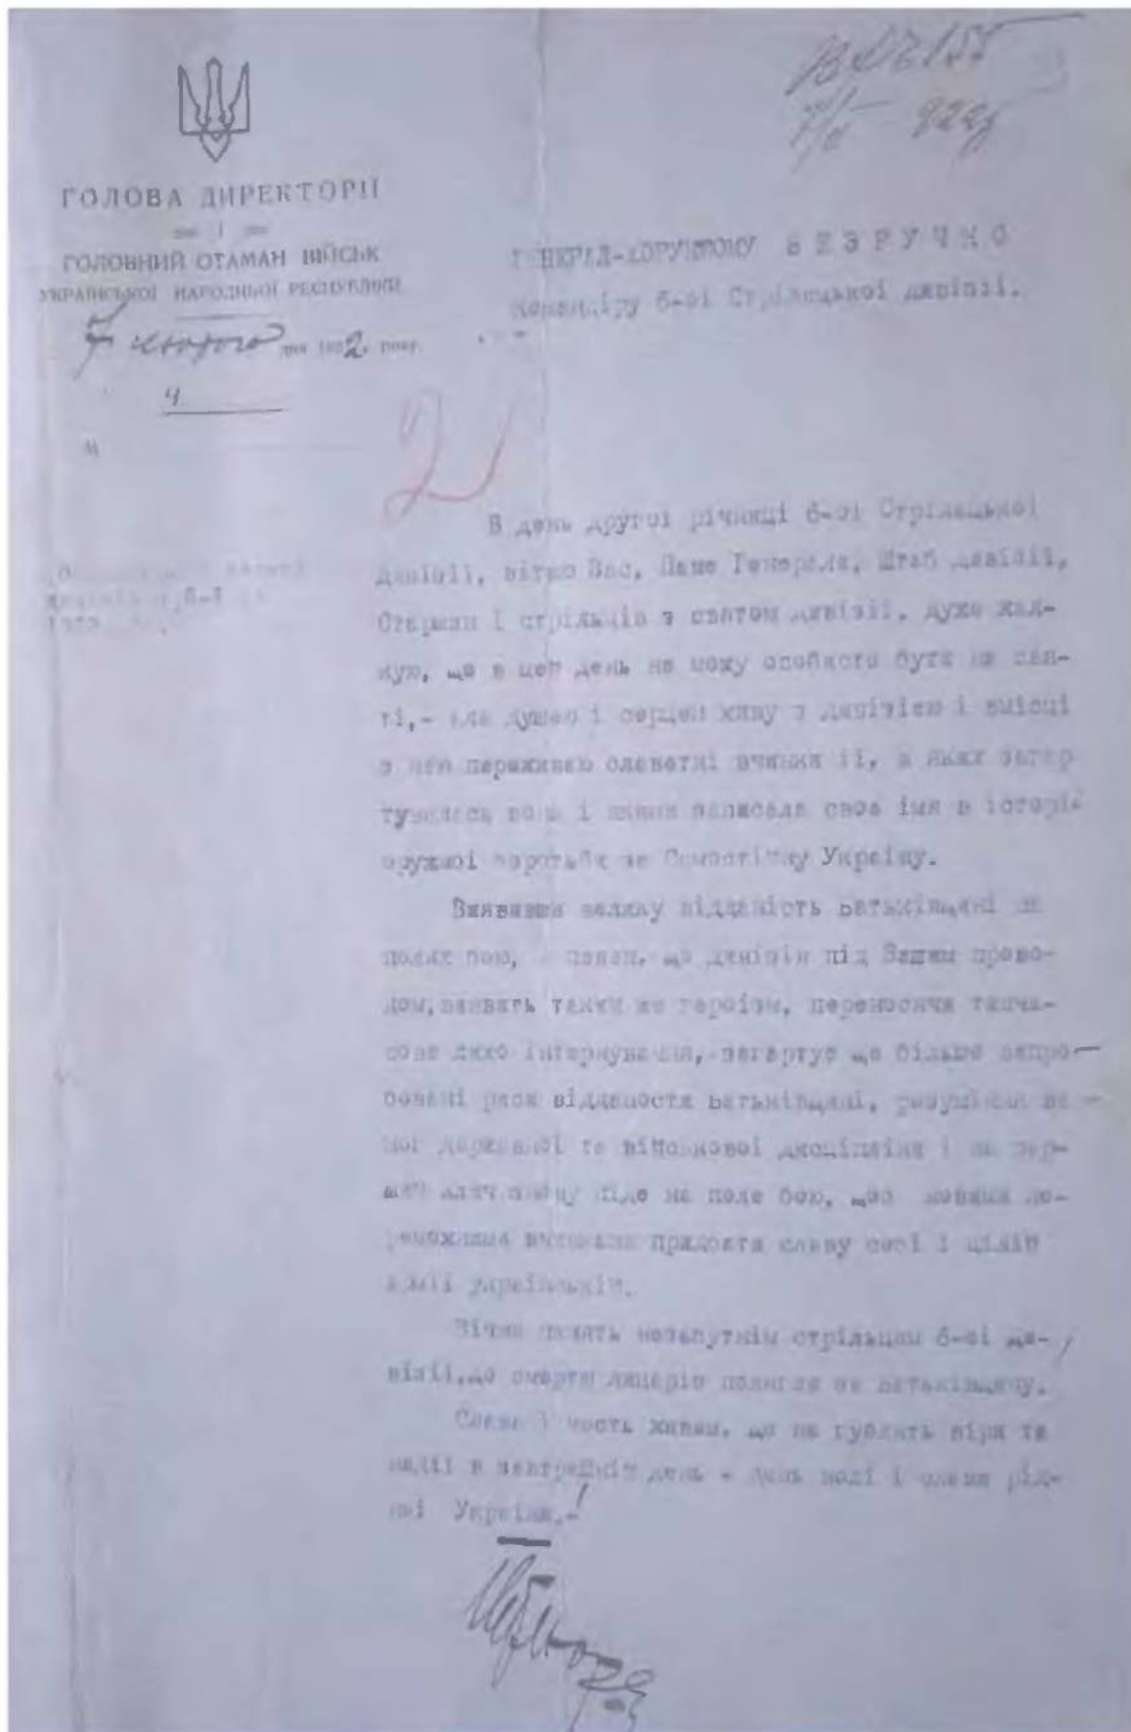 ГОЛОВА ДИРЕКТОРІЇ
І
ГОЛОВНИЙ ОТАМАН ВІЙСЬК
УКРАЇНСЬКОЇ НАРОДНЬОЇ РЕСПУБЛІКИ
7 лютого дня 1922, року
Ч.
М
ГЕНЕРАЛ-ХОРУНЖОМУ БЕЗРУЧКО
Командіру 6-оі Стрілецької дивізіі.
2
В день другоі річниці 6-оі Стрілецькоі
дивізіі, вітаю Вас, Пане Генерале, Штаб дивізіі,
Старшин і стрільців з святом дивізіі. Дуже жал-
кую, що в цей день не можу особисто бути на свя-
ті,- але душею і серцем живу з дивізією і вмісці
з нею переживаю славетні вчинки іі, в яких загар
тувалась вона і якими записала своє імя в історіі
оружноі боротьби за Самостійну Украіну.
Виявивши велику відданість Батьківщині на
полях бою, я певен, що дивізія під Вашим прово-
дом, виявить такий же героізм, переносячи тимча-
сове лихо інтернування, загартує ще більше випро-
бовані риси відданости Батьківщині, розуміння ви-
мог державноі та військовоі дисціпліни і на пер-
ший клич знову піде на поле бою, щоб новими пе-
реможними вчинками придбати славу собі і цілій
арміі украінській.
Вічна память незабутнім стрільцям 6-оі ди-
візіі, що смертю лицарів полягли за Батьківщину.
Слава і честь живим, що не гублять віри та
надіі в завтрешній день - день волі і слави рід-
ноі Украіни.-!